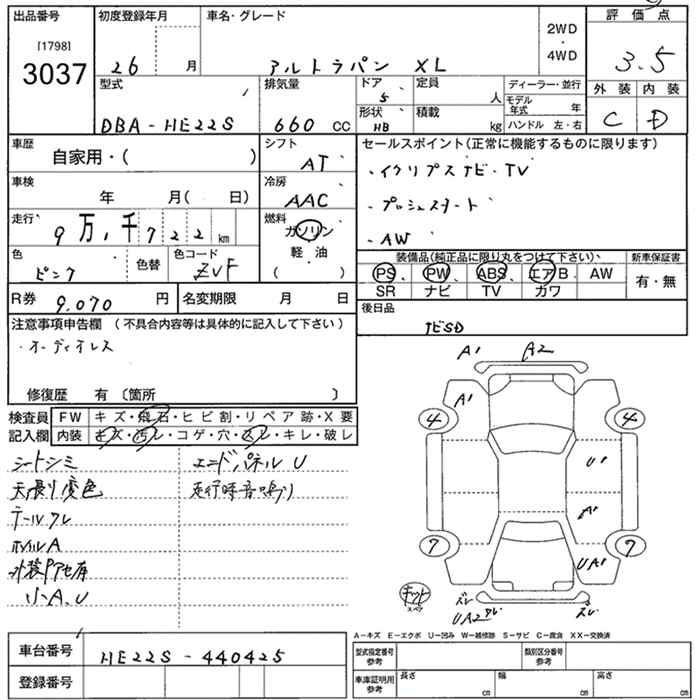 出品番号 初度登録年月 車名・グレード 評価点
[1798]
3037
26 月 アルトラパン XL 2WD・4WD 3.5
型式 排気量 ドア 定員 ディーラー・並行 外装 内装
DBA-HE22S 660 CC 5 人 モデル年式 年 C D
形状 積載
HB kg ハンドル 左・右
車歴 シフト セールスポイント(正常に機能するものに限ります)
自家用・( ) AT ・イクリプスナビ・TV
車検 冷房
年 月( 日) AAC ・プッシュスタート
走行 燃料
9万,千722km ガソリン ・AW
軽油
( )
色 色替 色コード
ピンク ZVF
装備品(純正品に限り丸をつけて下さい) 新車保証書
PS PW ABS エアB AW 有・無
SR ナビ TV カワ
R券 9,070 円 名変期限 月 日
後日品
ナビSD
注意事項申告欄 (不具合内容等は具体的に記入して下さい)
・オーディオレス
修復歴 有 〔箇所 〕
検査員記入欄
FW キズ・飛石・ヒビ割・リペア跡・X要
内装 キズ・汚レ・コゲ・穴・スレ・キレ・破レ
シートシミ エンドパネルU
天張り変色 走行時音鳴り
テールワレ
ホイルA
外装PP色有
小A.U
A1 A2
A1
4 4
U1
A1
7 7
UA1
キット スペア
ズレ UA2 ワレ ズレ
A-キズ E-エクボ U-凹み W-補修跡 S-サビ C-腐食 XX-交換済
車台番号 HE22S-440425
登録番号
型式指定番号 参考 類別区分番号 参考
車庫証明用 参考 長さ cm 幅 cm 高さ cm